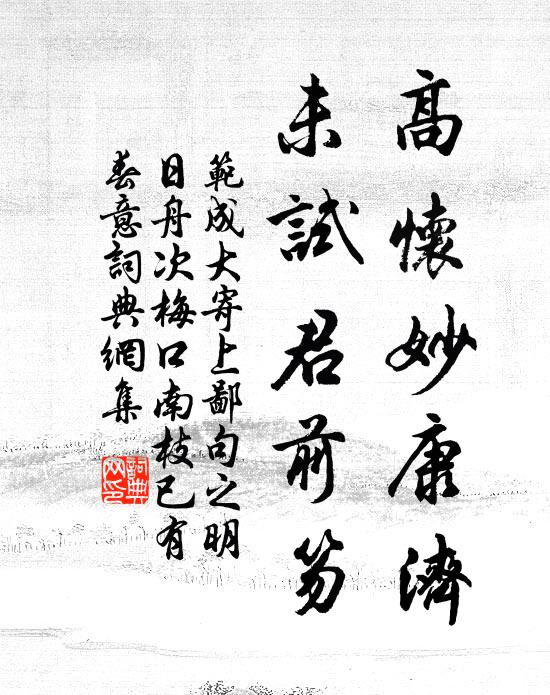 高懷妙康濟
未試君前笏
範成大寄上鄙句之明
日舟次梅口南枝已有
春意詞典網集
詞典
网印